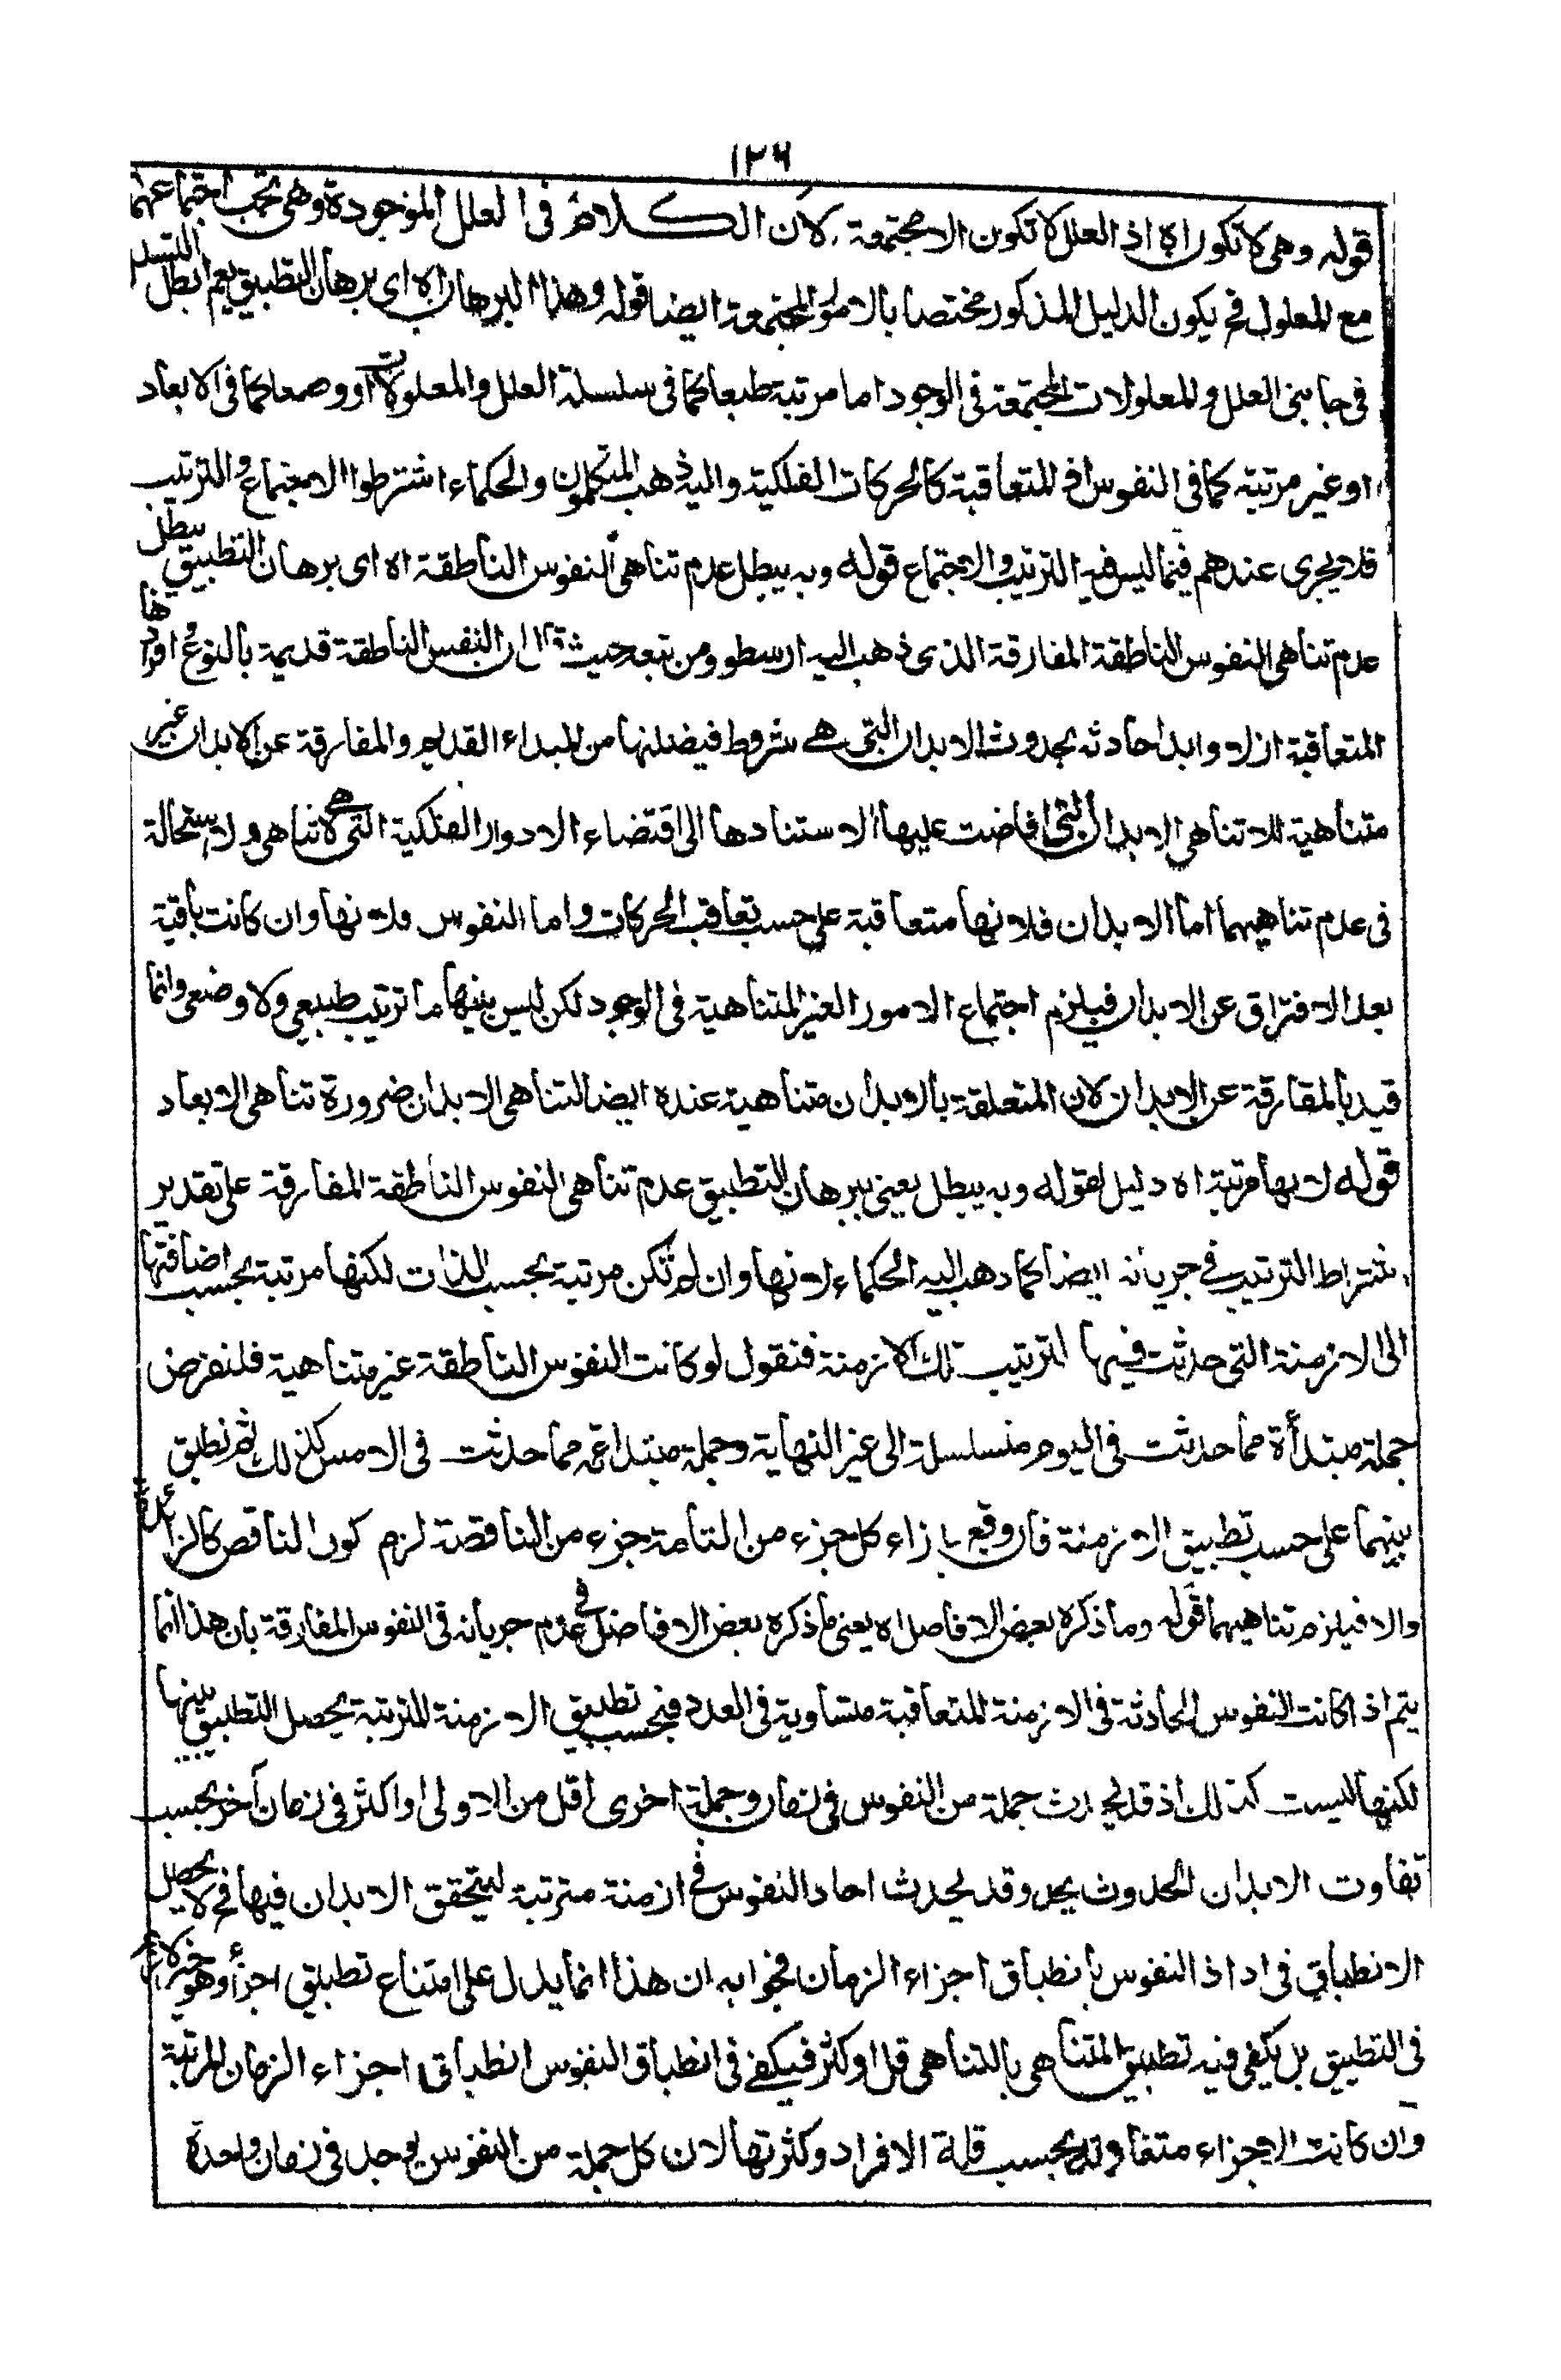 ١٢٦
قوله وهى لا تكون اه اذ العلل لا تكون الا مجتمعة لان الكلام فى العلل الموجودة وهى يجب اجتماعها
مع المعلول فح يكون الدليل المذكور مختصا بالامور المجتمعة ايضا قوله وهذا البرهان اه اى برهان التطبيق يعم ابطال التسلسل
فى جانبى العلل والمعلولات المجتمعة فى الوجود اما مرتبة طبعا كما فى سلسلة العلل والمعلولات او وضعا كما فى الابعاد
او غير مرتبة كما فى النفوس او المتعاقبة كالحركات الفلكية واليه ذهب المتكلمون والحكماء اشترطوا الاجتماع والترتيب
فلا يجرى عندهم فيما ليس فيه الترتيب والاجتماع قوله وبه يبطل عدم تناهى النفوس الناطقة اه اى برهان التطبيق يبطل
عدم تناهى النفوس الناطقة المفارقة الذى ذهب اليه ارسطو ومن تبعه حيث قال ان النفس الناطقة قديمة بالنوع افرادها
المتعاقبة ازلا وابدا حادثه بحدوث الابدان التى هے شروط فيضانها من المبداء القديم والمفارقة عن الابدان غير
متناهية للاتناهى الابدان التى افاضت عليها الاستنادها الى اقتضاء الادوار الفلكية التى هى لا تناهى ولا استحالة
فى عدم تناهيهما اما الابدان فلانها متعاقبة على حسب تعاقب الحركات واما النفوس فلانها وان كانت باقية
بعد الافتراق عن الابدان فيلزم اجتماع الامور الغير المتناهية فى الوجود لكن ليس بينها ما ترتيب طبيعى ولا وضعى وانما
قيد بالمفارقة عن الابدان لان المتعلقة بالابدان متناهية عنده ايضا لتناهى الابدان ضرورة تناهى الابعاد
قوله لانها مرتبة اه دليل لقوله وبه يبطل يعنى ببرهان التطبيق عدم تناهى النفوس الناطقة المفارقة على تقدير
اشتراط الترتيب فے جريانه ايضا كما ذهب اليه الحكماء لانها وان لم تكن مرتبة بحسب الذات لكنها مرتبة بحسب اضافتها
الى الازمنة التى حدثت فيها لترتيب تلك الازمنة فنقول لو كانت النفوس الناطقة غير متناهية فلنفرض
جملة مبتدأة مما حدثت فى اليوم متسلسلة الى غير النهاية وجملة مبتداءة مما حدثت فى الامس كذلك ثم نطبق
بينهما على حسب تطبيق الازمنة فان وقع بازاء كل جزء من التامة جزء من الناقصة لزم كون الناقص كالزائد
والا فيلزم تناهيهما قوله وما ذكره بعض الافاضل اه يعنى ما ذكره بعض الافاضل فى عدم جريانه فى النفوس المفارقة بان هذا انما
يتم اذا كانت النفوس الحادثة فى الازمنة المتعاقبة متساوية فى العدد فبحسب تطبيق الازمنة المترتبة يحصل التطبيق بينها
لكنها ليست كذلك اذ قد يحدث جملة من النفوس فى زمان وجملة اخرى اقل من الاولى او اكثر فى زمان آخر بحسب
تفاوت الابدان الحدوث يحد وقد يحدث احاد النفوس فى ازمنة مترتبة ليتحقق الابدان فيها فح لا يحصل
الانطباق فى اداذ النفوس بانطباق اجزاء الزمان فجوابه ان هذا انما يدل على امتناع تطبيق اجزأ وهو
فى التطبيق بل يكفى فيه تطبيق المتناهى بالتناهى قل او كثر فيكفے فى انطباق النفوس انطباق اجزاء الزمان المرتبة
وان كانت الاجزاء متفاوتة بحسب قلة الافراد وكثرتها لان كل جملة من النفوس يوجد فى زمان واحدة